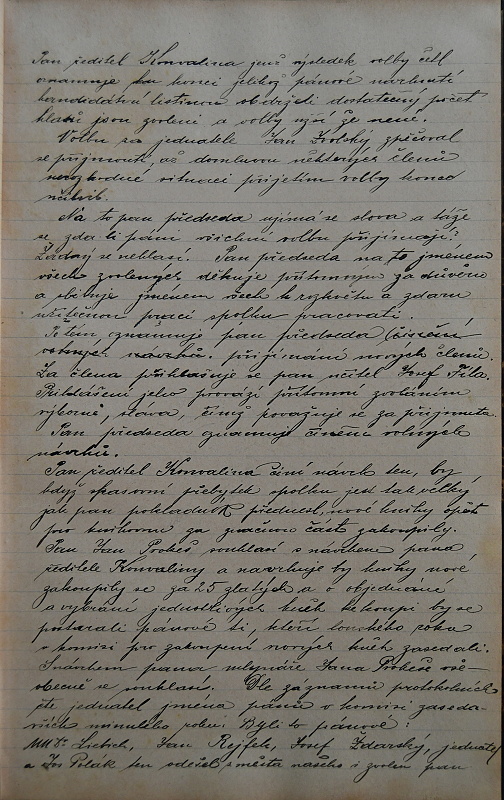 Pan ředitel Konvalina jenž výsledek volby četl
oznamuje ku konci jelikož pánové navrhnutí
kandidátní listinou obdrželi dostatečný počet
hlasů jsou zvoleni a volby užší že není.
Volbu za jednatele Jan Zvolský zpěčoval
se přijmouti, až domluvou některých členů
nerozhodné situaci přijetím volby konec
učinil.
Na to pan předseda ujímá se slova a táže
se zda-li páni všichni volbu přijímají?
Žádný se nehlásí. Pan předseda na to jménem
všech zvolených děkuje přítomným za důvěru
a slibuje jménem všech k rozkvětu a zdaru
užitečnou prací spolku pracovati.
Po tom, oznamuje pan předseda činění
volných návrhů. přijímání nových členů.
Za člena přihlašuje se pan učitel Josef Fila.
Přihlášení jeho provází přítomní zvoláním
výborně, sláva, čímž považuje se za přijmuta.
Pan předseda oznamuje činění volných
návrhů.
Pan ředitel Konvalina činí návrh ten, by
když kasovní přebytek spolku jest tak velký
jak pan pokladník přednesl, nové knihy opět
pro knihovnu za značnou část zakoupily.
Pan Jan Prokeš souhlasí s návrhem pana
ředitele Konvaliny a navrhuje by knihy nové
zakoupily se za 25 zlatých a o objednání
a vybrání jednotlivých knih ke koupi by se
postarali pánové ti, kteří loňského roku
v komisi pro zakoupení nových knih zasedali.
S návrhem pana mlynáře Jana Prokeše vše-
obecně se souhlasí. Dle záznamů protokolních
čte jednatel jména pánů v komisi zaseda-
vších minulého roku. Byli to pánové:
MUDr. Jan Rejfek, Josef Ždárský, jednatel
a Jos Polák ten odešel z města našeho i zvolen pan